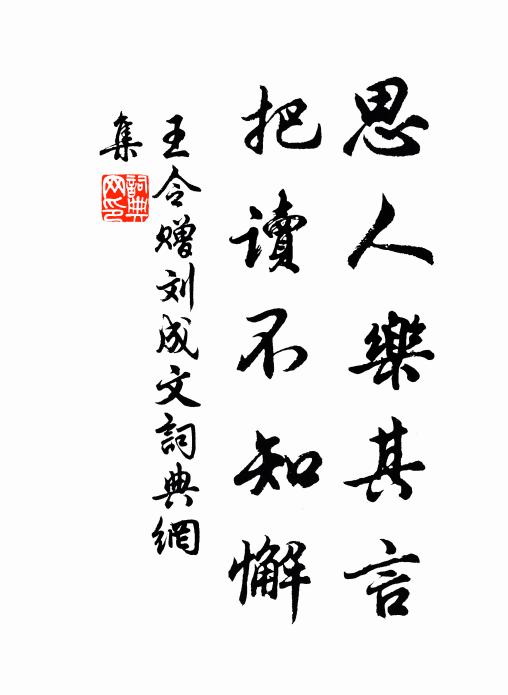 思人樂其言
把讀不知懈
王令赠刘成文詞典網
集
詞典
网印